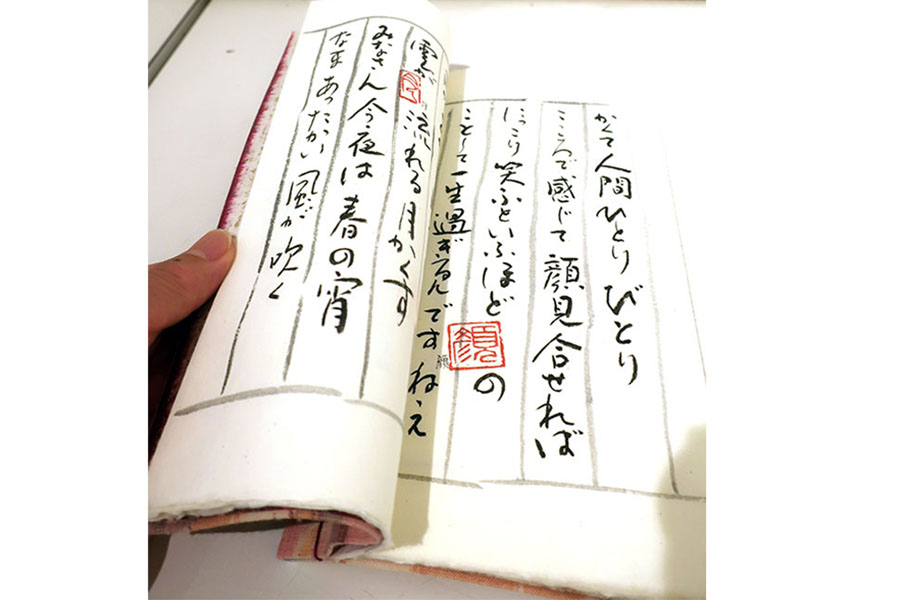 かくて人間ひとりびとり
こころで感じて顔見合せれば
にっこり笑ふといふほどの
ことして一生過ぎるんですねえ
雲が流れる月かくす
みなさん今夜は春の宵
なまあったかい風が吹く